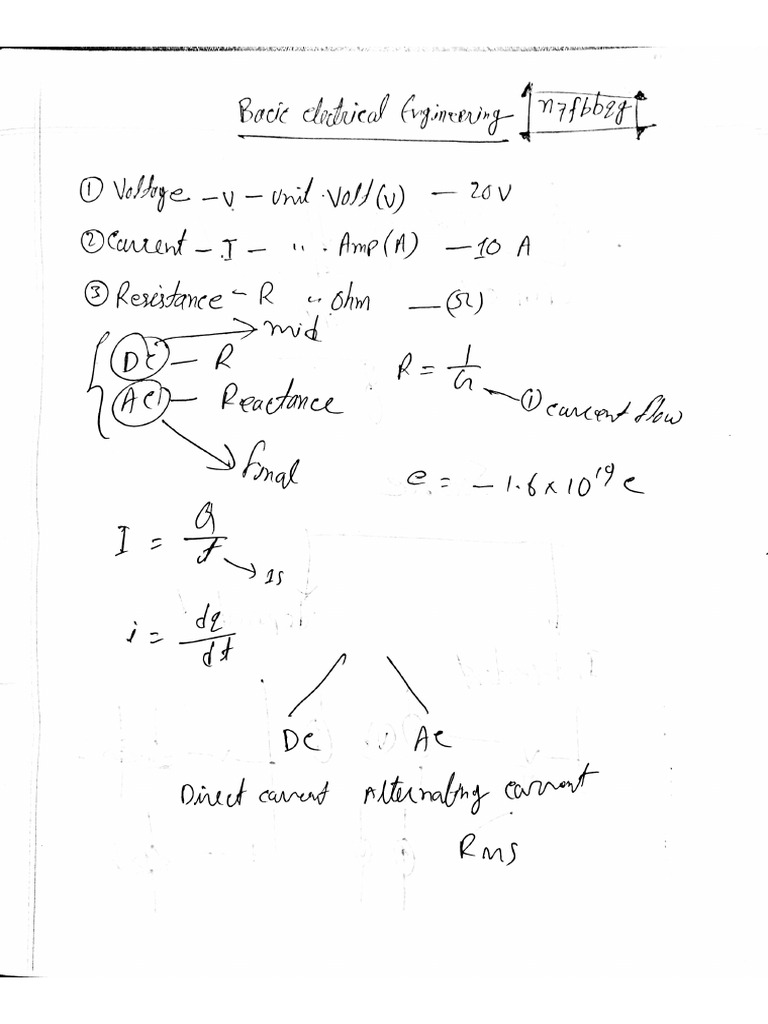 Basic electrical Engineering [n7fbb2g]
① Voltage - V - unit . Volt (V) - 20 V
② Current - I - " . Amp (A) - 10 A
③ Resistance - R " Ohm - (Ω)
DC - R → mid
AC - Reactance → final
R = 1/G → ① current flow
e = - 1.6 × 10¹⁹ c
I = Q/t → 1s
i = dq/dt
DC AC
Direct current Alternating current
RMS